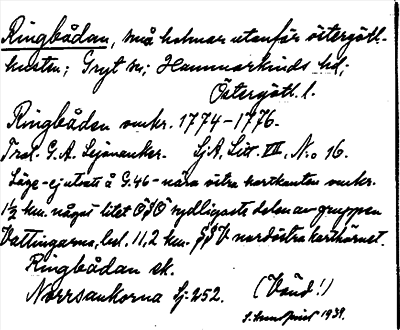 Ringbådan, små holmar utanför östergötl.-
kusten; Gryt sn; Hammarkinds hd;
Östergötl. l.
Ringbåden omkr. 1774–1776.
Trol. G. A. Lejonanker. Sj.A. Litt. VII. N:o 16.
Läge - ej utsatt å G.46 - nära östra kartkanten omkr.
1½ km. något litet OSO sydligaste delen av gruppen
Vattingarna, bel. 11,2 km. SSV nordöstra karthörnet.
Ringbådan sk.
Norrsankorna Sj. 252. (Vänd!)
1939.